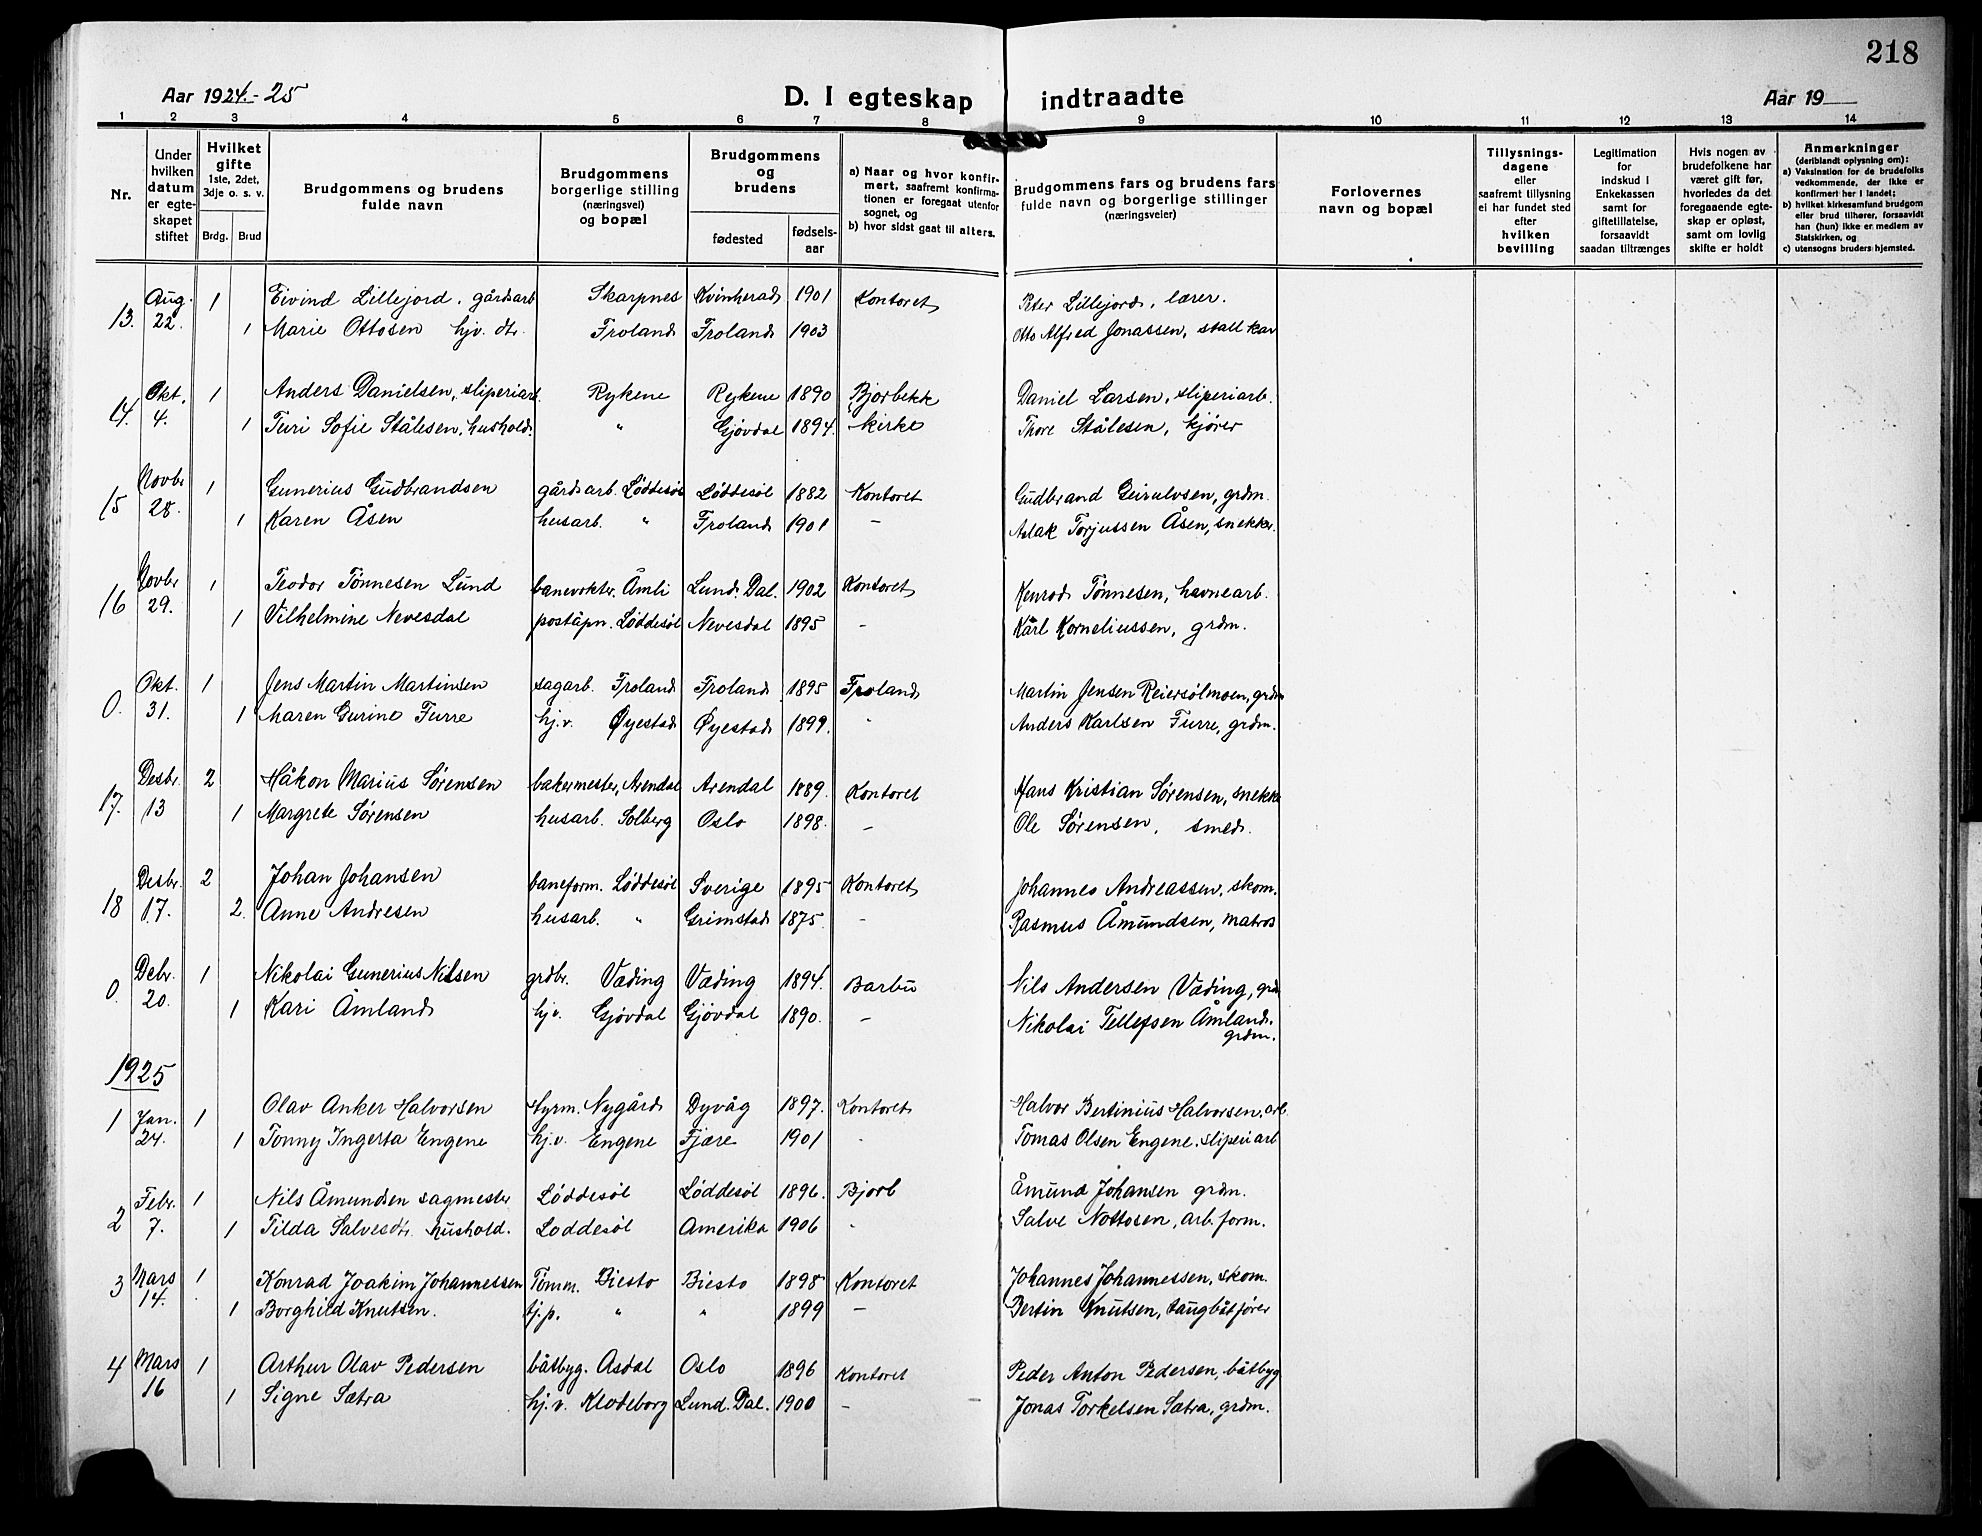 218
Aar 1924-25 D. I egteskap indtraadte Aar 19
1 2 3 4 5 6 7 8 9 10 11 12 13 14
Nr.
Under hvilken datum er egteskapet stiftet
Hvilket gifte 1ste, 2det, 3dje o. s. v.
Brdg. Brud
Brudgommens og brudens fulde navn
Brudgommens borgerlige stilling (næringsvei) og bopæl
Brudgommens og brudens
fødested fødselsaar
a) Naar og hvor konfirmert, saafremt konfirmationen er foregaat utenfor sognet, og
b) hvor sidst gaat til alters.
Brudgommens fars og brudens fars fulde navn og borgerlige stillinger (næringsveier)
Forlovernes navn og bopæl
Tillysningsdagene eller saafremt tillysning ei har fundet sted efter hvilken bevilling
Legitimation for indskud i Enkekassen samt for giftetillatelse, forsaavidt saadan tiltrænges
Hvis nogen av brudefolkene har været gift før, hvorledes da det foregaaende egteskap er opløst, samt om lovlig skifte er holdt
Anmerkninger (deriblandt oplysning om):
a) Vaksination for de brudefolks vedkommende, der ikke er konfirmert her i landet;
b) hvilket kirkesamfund brudgom eller brud tilhører, forsaavidt han (hun) ikke er medlem av Statskirken, og
c) utensogns bruders hjemsted.
13. Aug. 22. 1 Eivind Lillejord, gårdsarb Skarpnes Kvinherad 1901 Kontoret Peter Lillejord, lærer.
1 Marie Ottosen hjv. dtr. Froland Froland 1903 Otto Alfred Jonassen, stallkar
14. Okt. 4. 1 Anders Danielsen, sliperiarb. Rykene Rykene 1890 Bjorbekk Daniel Larsen, sliperiarb.
1 Turi Sofie Stålesen, hushold. " Gjøvdal 1894. kirke Thore Stålesen, kjører
15 Novbr 28. 1 Gunerius Gudbrandsen gårdsarb. Løddesøl Løddesøl 1882 Kontoret Gudbrand Geirulvsen, grdm.
1 Karen Åsen husarb. " Froland 1901 - Aslak Torjussen Åsen, snekker.
16 Novbr 29. 1 Teodor Tønnesen Lund banevokter, Åmli Lund. Dal. 1902 Kontoret Konrad Tønnesen, havnearb.
1 Vilhelmine Nevesdal poståpn. Løddesøl Nevesdal 1895 - Karl Korneliussen, grdm.
0. Okt. 31. 1 Jens Martin Martinsen sagarb. Froland Froland 1895 Froland Martin Jensen Reiersølmoen, grdm
1 Maren Gurine Furre hj.v. Øyestad Øyestad 1899. " Anders Karlsen Furre, grdm.
17. Desbr. 13 2 Håkon Marius Sørensen bakermester, Arendal Arendal 1889. Kontoret Hans Kristian Sørensen, snekke
1 Margrete Sørensen husarb. Solberg Oslo 1898. - Ole Sørensen, smed.
18 Desbr. 17. 2 Johan Johansen baneform. Løddesøl Sverige 1895 Kontoret Johannes Andreassen, skom.
2. Anne Andresen husarb. " Grimstad 1875. - Rasmus Åmundsen, matros
0. Debr. 20. 1 Nikolai Gunerius Nilsen grdbr. Væding Væding 1894. Barbu Nils Andersen Væding, grdm
1 Kari Åmland hjv. Gjøvdal Gjøvdal 1890. - Nikolai Tellefsen Åmland, grdm.
1925
1 Jan. 24. 1 Olav Anker Halvorsen styrm. Nygård Dyvåg 1897. Kontoret Halvor Bertinius Halvorsen, arb.
1 Tonny Ingerta Engene hj.v. Engene Fjære 1901 " Tomas Olsen Engene, sliperiarb
2 Febr. 7. 1 Nils Åmundsen sagmester Løddesøl Løddesøl 1896. Bjorb Åmund Johansen grdm.
1 Tilda Salvesdtr. hushold. Loddesøl Amerika 1906 " Salve Nottosen, arb. form.
3 Mars 14. 1 Konrad Joakim Johannessen Tømm. Biesto Biesto 1898 Kontoret Johannes Johannessen, skom.
1 Borghild Knutsen. tj.p. " " 1899 - Bertin Knutsen, taugbåtfører
4 Mars 16 1 Arthur Olav Pedersen båtbyg. Asdal Oslo 1896 Kontoret Peder Anton Pedersen, båtbyg
1 Signe Sætra hj.v. Klodeborg Lund. Dal. 1900 - Jonas Torkelsen Sætra, grdm.